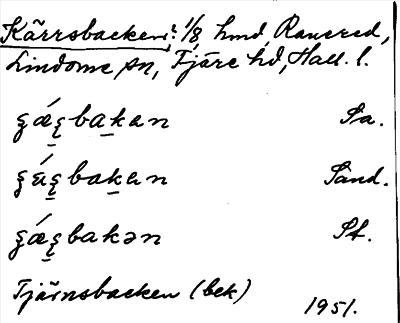 Kärrsbacken: 1/8 hmd, Ranered,
Lindome sn, Fjäre hd, Hall. l.
bakan Sa.
bakan Sand.
bakən St.
Tjärnsbacken (bek)
1951.